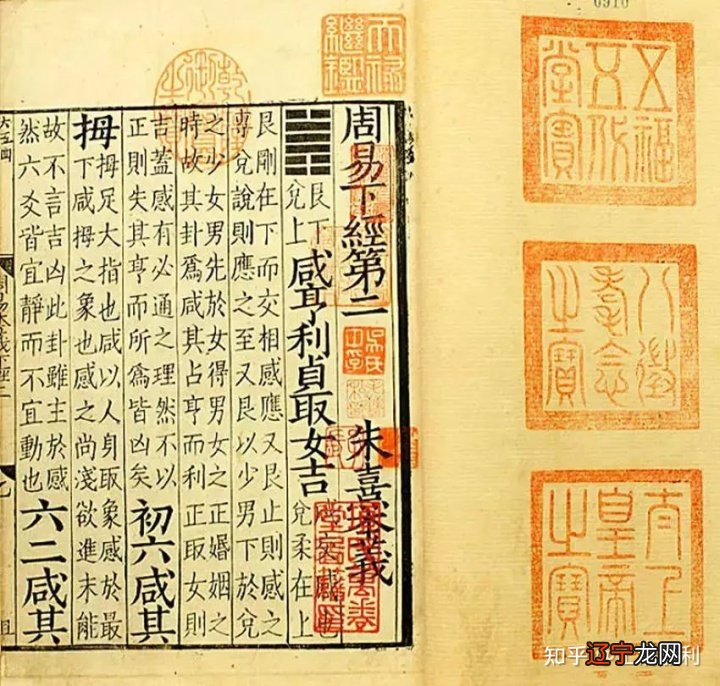 0910
周易下經第二
朱熹本義
艮下
兌上
咸亨利貞取女吉
交感也
兌柔在上
艮剛在下而交相感應又艮止則感之
專兌說則應之至又艮以少男下於兌
之少女男先於女得男女之正婚姻之
時故其卦爲咸其占亨而利正取女則
吉蓋感有必通之理然不以
正則失其亨而所爲皆凶矣
初六咸其
拇
拇足大指也咸以人身取象感於最
下咸拇之象也感之尚淺欲進未能
故不言吉凶此卦雖主於感
然六爻皆宜靜而不宜動也
六二咸其
天祿繼鑑
乾隆御覽之寶
五福五代堂寶
八徵耄念之寶
太上皇帝之寶
知乎
辽宁龙网
利